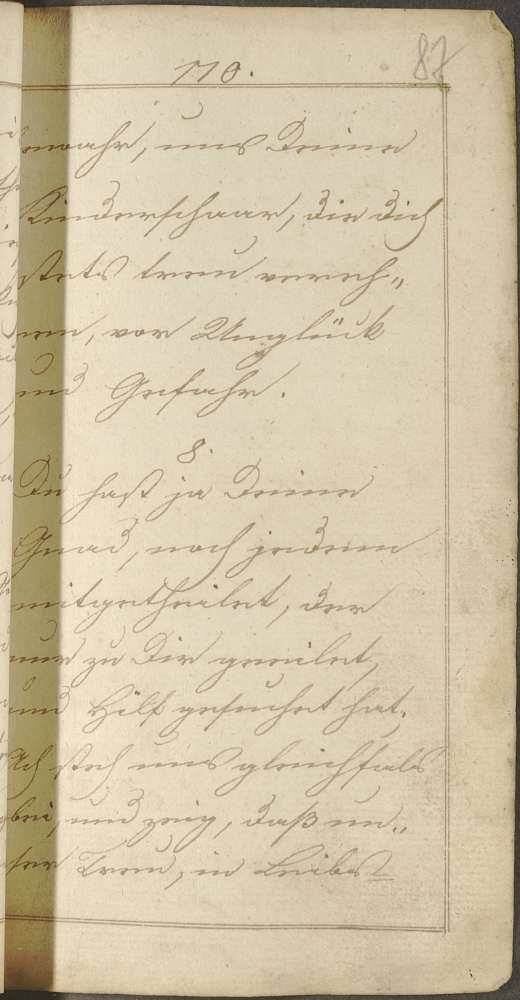 110.
87
wahr, uns Deine
Kinderschaar, die dich
stets treu vereh„
ren, vor Unglück
und Gefahr.
8.
Du hast ja Deine
Gnad, noch jedem
mitgetheilet, der
nur zu Dir geeilet,
und Hilf gesuchet hat.
Ach steh uns gleichfals
bei, und zeig, daß un„
ser Treu, in Leibes